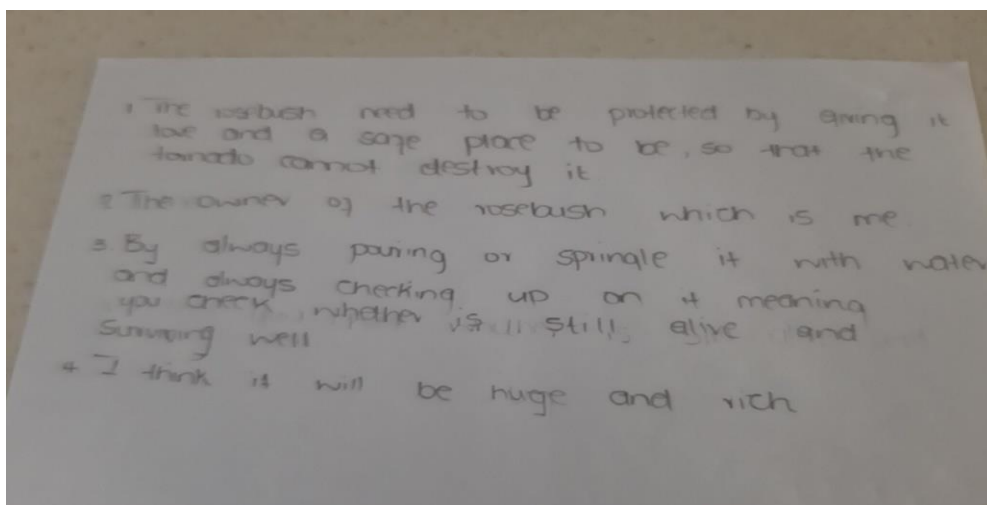 1 The rosebush need to be protected by giving it
love and a safe place to be, so that the
tornado cannot destroy it
2 The owner of the rosebush which is me
3 By always pouring or springle it with water
and always checking up on it meaning
you check, whether is still alive and
Surviving well
4 I think it will be huge and rich